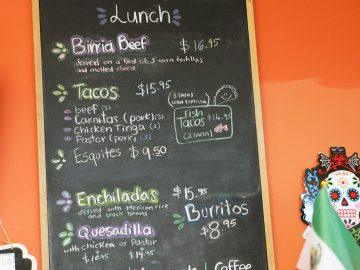 Lunch
Birria Beef $16.95
served on a bed of 3 corn tortillas
and melted cheese
Tacos $15.95
beef (3)
Carnitas (pork) (3)
Chicken Tinga (3)
Pastor (pork) (3)
3 TACOS
CORN TORTILLA
Fish
Tacos $14.95
(2 TACOS)
Esquites $9.50
Enchiladas $15.95
served with Mexican rice
and black beans
Burritos
$8.95
Quesadilla
with chicken or Pastor
$14.95
Coffee